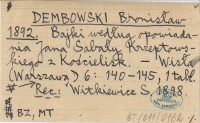 DEMBOWSKI Bronisław
1892. Bajki według opowiada-
nia Jana Sabały Krzeptows-
kiego z Kościelisk. - Wisła
(Warszawa) 6: 140-145, 1 tabl.
Rec: Witkiewicz S. 1898.
BZ, MT